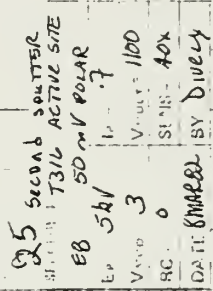 25 SECOND SPUTTER
T316 ACTIVE SITE
EB 50 mV POLAR
Ep 5kV .7
3 1100
RC 0 40X
DATE 8MAR82 BY Dively